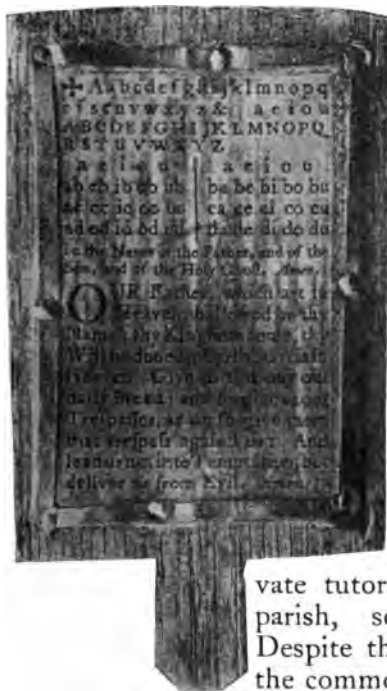 ✠ Aabcdefghijklmnopq
rſstuvwxyz& aeiou
ABCDEFGHIJKLMNOPQ
RSTUVWXYZ
a e i o u a e i o u
ab eb ib ob ub ba be bi bo bu
ac ec ic oc uc ca ce ci co cu
ad ed id od ud da de di do du
In the Name of the Father, and of the
Son, and of the Holy Ghoſt. Amen.
OUR Father, which art in
Heaven, hallowed be thy
Name; thy Kingdom come, thy
Will be done on Earth, as it is in
Heaven. Give us this Day our
daily Bread; and forgive us our
Treſpaſſes, as we forgive them
that treſpaſs againſt us: And
lead us not into Temptation, but
deliver us from Evil. Amen.
vate tutor
parish,
Despite th
the commo